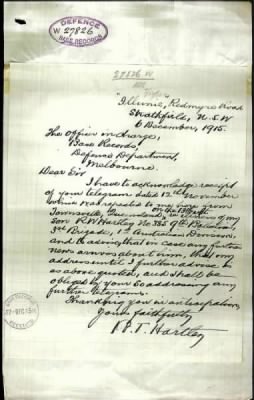 DEFENCE
W 27826
BASE RECORDS
27826 W
"Illinnie", Redmyre Road
Strathfield, N.S.W
6 December, 1915.
The Officer in Charge,
Base Records,
Defence Department,
Melbourne.
Dear Sir
I have to acknowledge receipt
of your telegram dated 12th November
which was repeated to me here from
Townsville, Queensland, in reference of my
Son R.W. Hartley No 785 9th Battalion,
3rd Brigade, 1st Australian Division,
and to advise that in case any further
news arrives about him, that my
address until I further advise is
as above quoted, and I shall be
obliged by your so addressing any
further telegrams.
Thanking you in anticipation,
Yours faithfully
T. Hartley